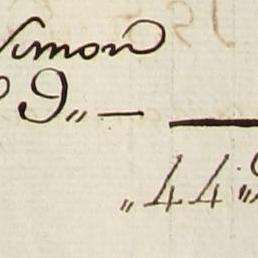 Simon
9,, —
,,44,,